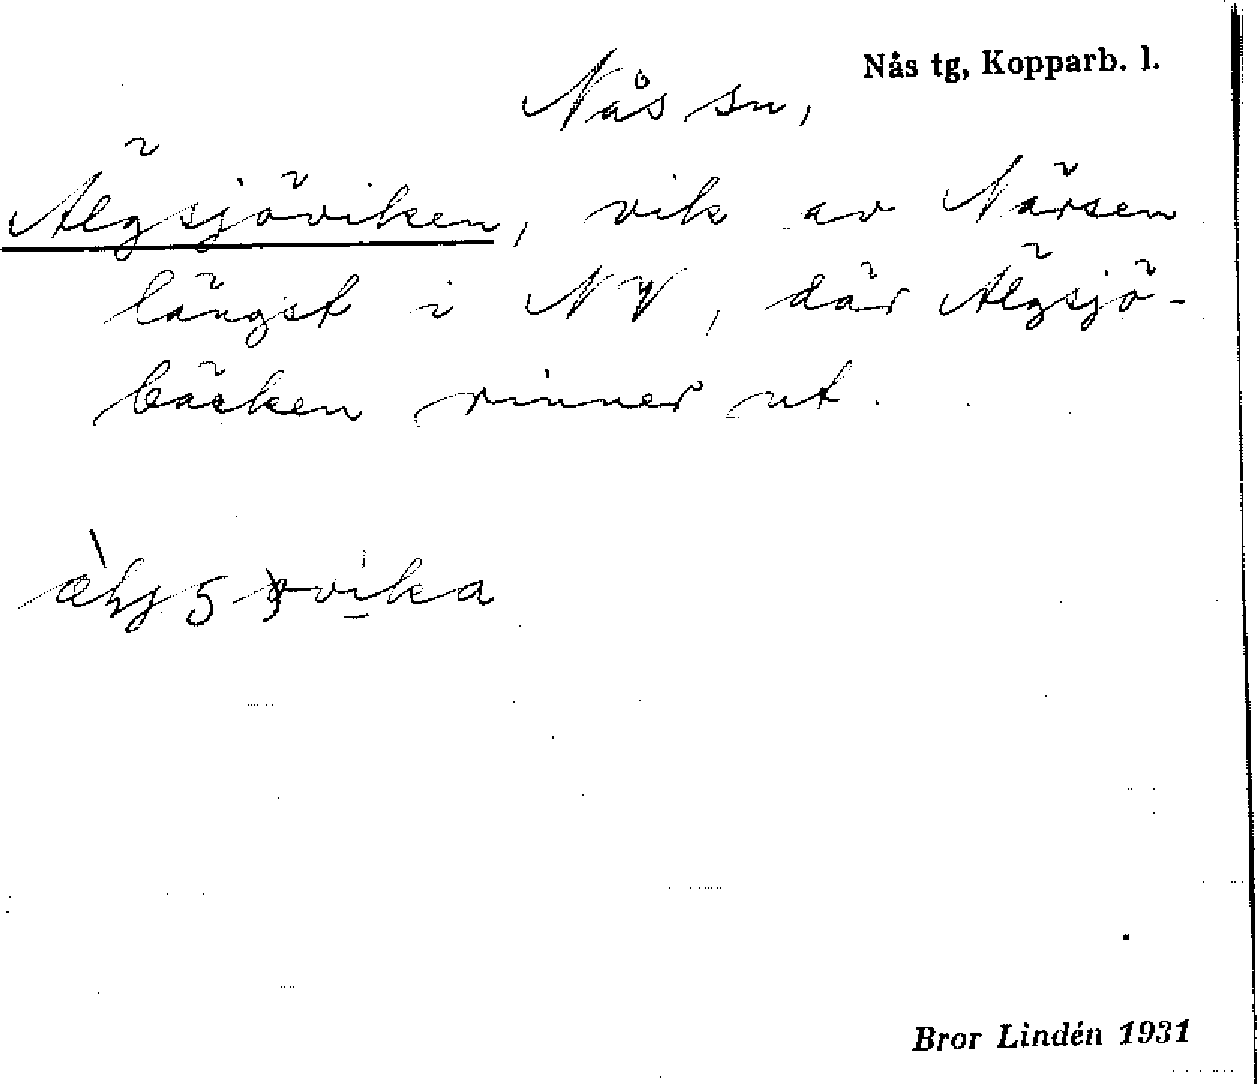 Nås tg, Kopparb. l.
Nås sn,
Älgsjöviken, vik av Närsen
längst i NV, där Älgsjö-
bäcken rinner ut.
Bror Lindén 1931